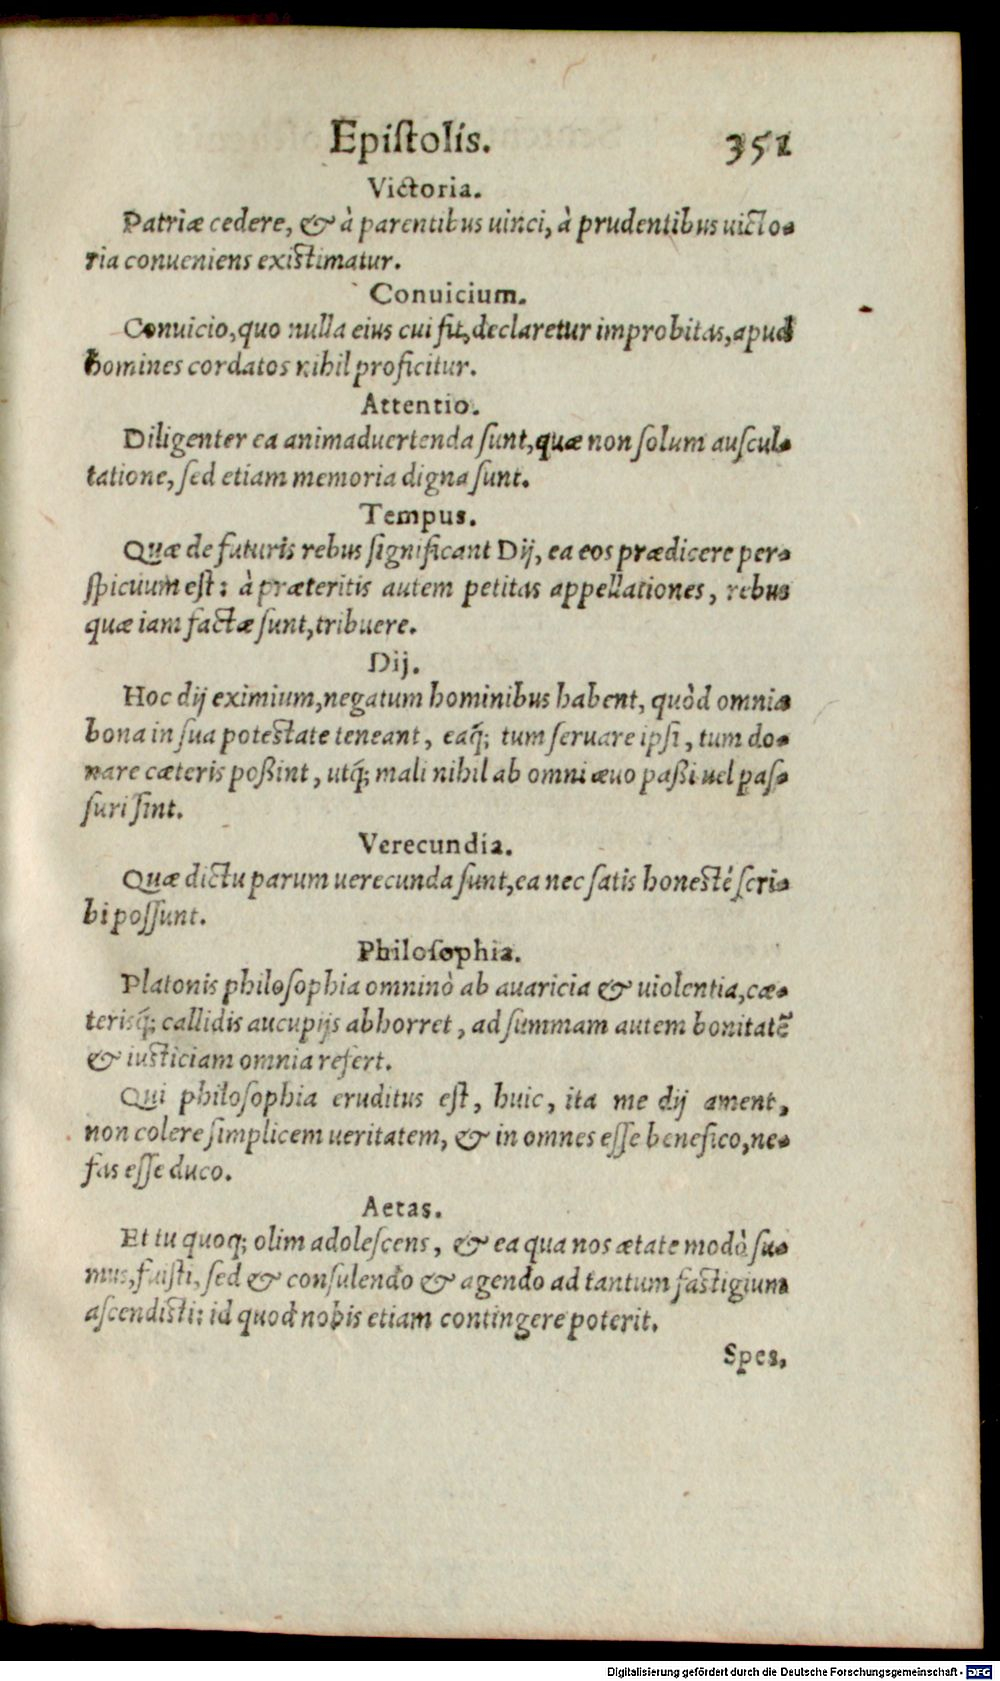 Epiſtolis. 351
Victoria.
Patriæ cedere, & à parentibus uinci, à prudentibus uicto-
ria conueniens existimatur.
Conuicium.
Conuicio, quo nulla eius cui fit, declaretur improbitas, apud
homines cordatos nihil proficitur.
Attentio.
Diligenter ea animaduertenda ſunt, quæ non ſolum auſcul-
tatione, ſed etiam memoria digna ſunt.
Tempus.
Quæ de futuris rebus ſignificant Dij, ea eos prædicere per-
ſpicuum eſt: à præteritis autem petitas appellationes, rebus
quæ iam factæ ſunt, tribuere.
Dij.
Hoc dij eximium, negatum hominibus habent, quòd omnia
bona in ſua potestate teneant, eaq́; tum ſeruare ipſi, tum do-
nare cæteris poßint, utq́; mali nihil ab omni æuo paßi uel paſ-
ſuri ſint.
Verecundia.
Quæ dictu parum uerecunda ſunt, ea nec ſatis honestè ſcri-
bi poſſunt.
Philoſophia.
Platonis philoſophia omninò ab auaricia & uiolentia, cæ-
terisq́; callidis aucupijs abhorret, ad ſummam autem bonitatē
& iusticiam omnia refert.
Qui philoſophia eruditus eſt, huic, ita me dij ament,
non colere ſimplicem ueritatem, & in omnes eſſe benefico, ne-
fas eſſe duco.
Aetas.
Et tu quoq; olim adoleſcens, & ea qua nos ætate modò ſu-
mus, fuisti, ſed & conſulendo & agendo ad tantum fastigium
aſcendisti: id quod nobis etiam contingere poterit.
Spes,
Digitalisierung gefördert durch die Deutsche Forschungsgemeinschaft - DFG